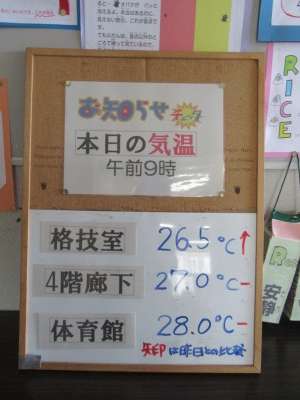 お知らせ
本日の気温
午前9時
格技室 26.5℃↑
4階廊下 27.0℃−
体育館 28.0℃−
矢印は昨日との比較
RICE
安静